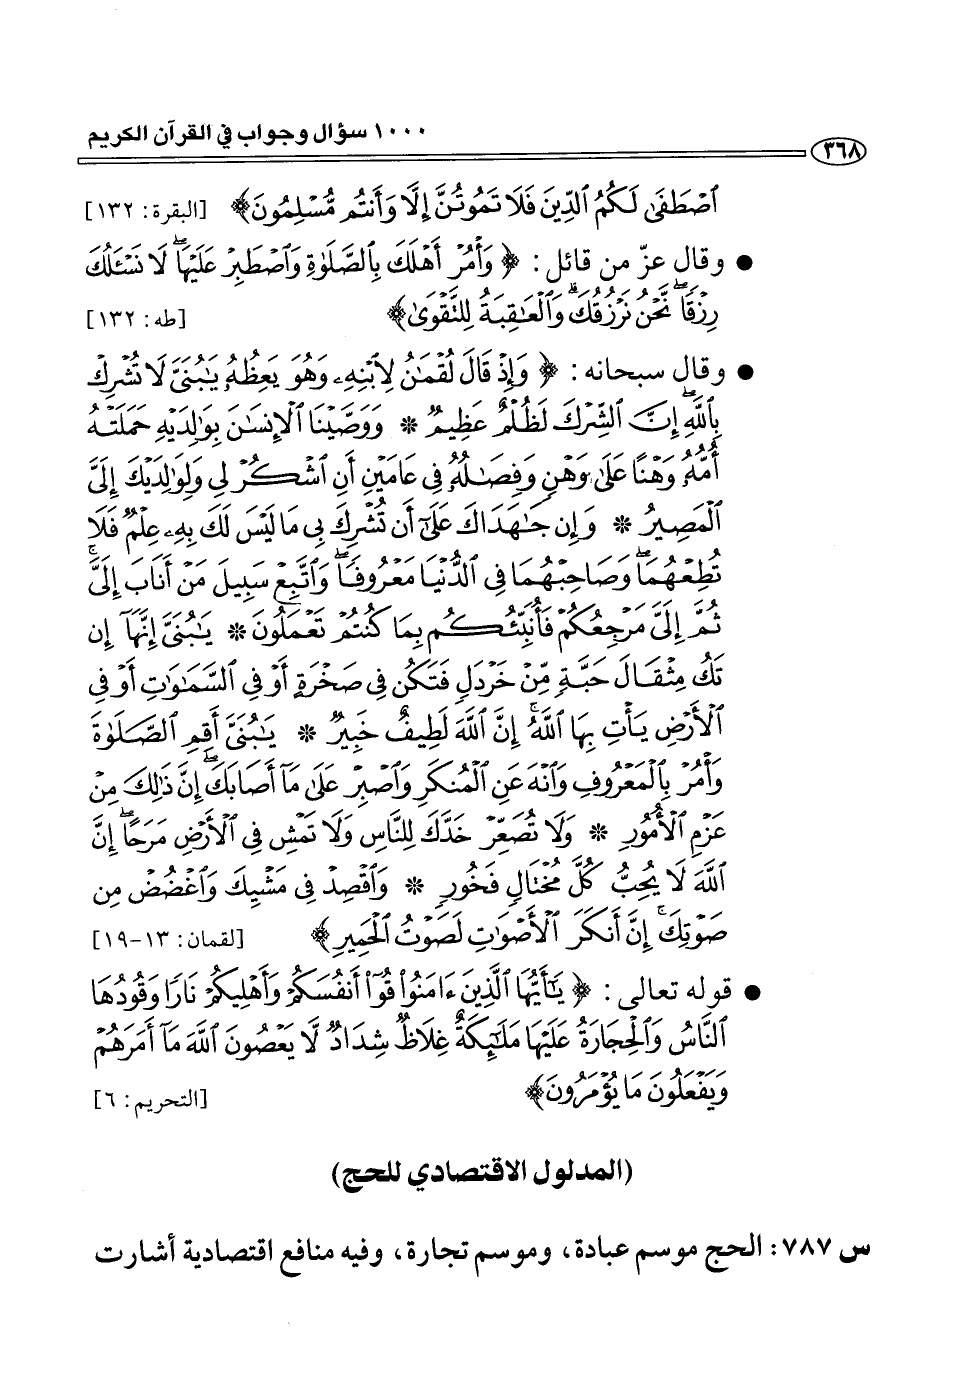 ١٠٠٠ سؤال وجواب في القرآن الكريم
٣٦٨
ٱصْطَفَىٰ لَكُمُ ٱلدِّينَ فَلَا تَمُوتُنَّ إِلَّا وَأَنتُم مُّسْلِمُونَ﴾ [البقرة: ١٣٢]
● وقال عزّ من قائل: ﴿وَأْمُرْ أَهْلَكَ بِٱلصَّلَوٰةِ وَٱصْطَبِرْ عَلَيْهَا ۖ لَا نَسْـَٔلُكَ
رِزْقًا ۖ نَّحْنُ نَرْزُقُكَ ۗ وَٱلْعَـٰقِبَةُ لِلتَّقْوَىٰ﴾ [طه: ١٣٢]
● وقال سبحانه: ﴿وَإِذْ قَالَ لُقْمَـٰنُ لِٱبْنِهِۦ وَهُوَ يَعِظُهُۥ يَـٰبُنَىَّ لَا تُشْرِكْ
بِٱللَّهِ ۖ إِنَّ ٱلشِّرْكَ لَظُلْمٌ عَظِيمٌ * وَوَصَّيْنَا ٱلْإِنسَـٰنَ بِوَٰلِدَيْهِ حَمَلَتْهُ
أُمُّهُۥ وَهْنًا عَلَىٰ وَهْنٍ وَفِصَـٰلُهُۥ فِى عَامَيْنِ أَنِ ٱشْكُرْ لِى وَلِوَٰلِدَيْكَ إِلَىَّ
ٱلْمَصِيرُ * وَإِن جَـٰهَدَاكَ عَلَىٰٓ أَن تُشْرِكَ بِى مَا لَيْسَ لَكَ بِهِۦ عِلْمٌ فَلَا
تُطِعْهُمَا ۖ وَصَاحِبْهُمَا فِى ٱلدُّنْيَا مَعْرُوفًا ۖ وَٱتَّبِعْ سَبِيلَ مَنْ أَنَابَ إِلَىَّ ۚ
ثُمَّ إِلَىَّ مَرْجِعُكُمْ فَأُنَبِّئُكُم بِمَا كُنتُمْ تَعْمَلُونَ * يَـٰبُنَىَّ إِنَّهَآ إِن
تَكُ مِثْقَالَ حَبَّةٍ مِّنْ خَرْدَلٍ فَتَكُن فِى صَخْرَةٍ أَوْ فِى ٱلسَّمَـٰوَٰتِ أَوْ فِى
ٱلْأَرْضِ يَأْتِ بِهَا ٱللَّهُ ۚ إِنَّ ٱللَّهَ لَطِيفٌ خَبِيرٌ * يَـٰبُنَىَّ أَقِمِ ٱلصَّلَوٰةَ
وَأْمُرْ بِٱلْمَعْرُوفِ وَٱنْهَ عَنِ ٱلْمُنكَرِ وَٱصْبِرْ عَلَىٰ مَآ أَصَابَكَ ۖ إِنَّ ذَٰلِكَ مِنْ
عَزْمِ ٱلْأُمُورِ * وَلَا تُصَعِّرْ خَدَّكَ لِلنَّاسِ وَلَا تَمْشِ فِى ٱلْأَرْضِ مَرَحًا ۖ إِنَّ
ٱللَّهَ لَا يُحِبُّ كُلَّ مُخْتَالٍ فَخُورٍ * وَٱقْصِدْ فِى مَشْيِكَ وَٱغْضُضْ مِن
صَوْتِكَ ۚ إِنَّ أَنكَرَ ٱلْأَصْوَٰتِ لَصَوْتُ ٱلْحَمِيرِ﴾ [لقمان: ١٣-١٩]
● قوله تعالى: ﴿يَـٰٓأَيُّهَا ٱلَّذِينَ ءَامَنُوا۟ قُوٓا۟ أَنفُسَكُمْ وَأَهْلِيكُمْ نَارًا وَقُودُهَا
ٱلنَّاسُ وَٱلْحِجَارَةُ عَلَيْهَا مَلَـٰٓئِكَةٌ غِلَاظٌ شِدَادٌ لَّا يَعْصُونَ ٱللَّهَ مَآ أَمَرَهُمْ
وَيَفْعَلُونَ مَا يُؤْمَرُونَ﴾ [التحريم: ٦]
(المدلول الاقتصادي للحج)
س ٧٨٧: الحج موسم عبادة، وموسم تجارة، وفيه منافع اقتصادية أشارت